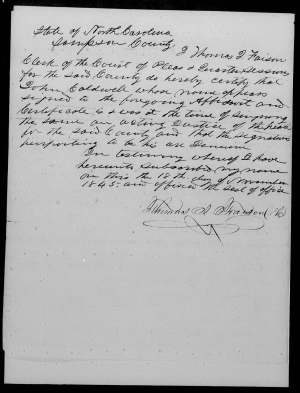 State of North Carolina
Sampson County
I Thomas I Faison
Clerk of the Court of Pleas & Quarter Sessions
for the said County do hereby certify that
John Coldwell whose name appears
signed to the foregoing Affidavit and
Certificate is & was at the time of signing
the same an acting Justice of the peace
for the said County and that the signature
purporting to be his are Genuine
In testimony whereof I have
hereunto subscribed my name
on this the 18th day of November
1845 and affixed the seal of office
Thomas I Faison